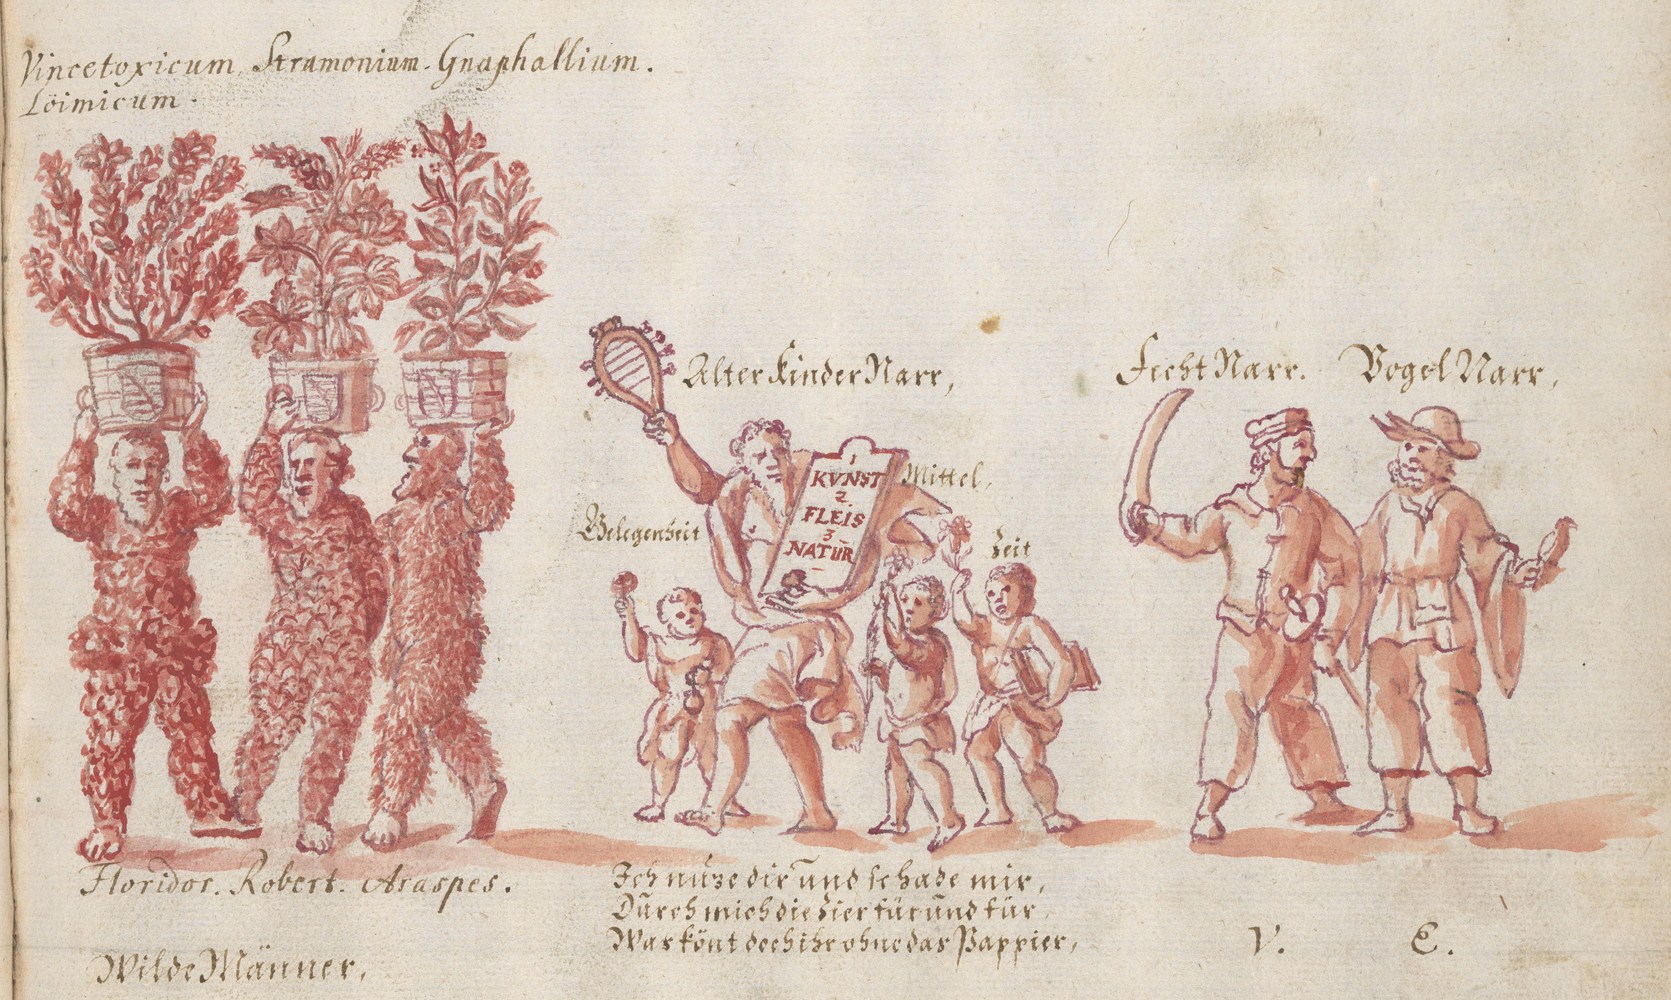 Vincetoxicum. Stramonium. Gnaphallium.
Loimicum.
Alter Kinder Narr,
Fecht Narr. Vogel Narr,
Mittel,
Gelegenheit
Zeit
1
KVNST
2
FLEIS
3
NATUR
Floridor. Robert. Araspes.
Wilde Männer,
Ich nuze dir und schade mir,
Durch mich die Zier für und für
Was könt doch ihr ohne das Pappier,
V. C.